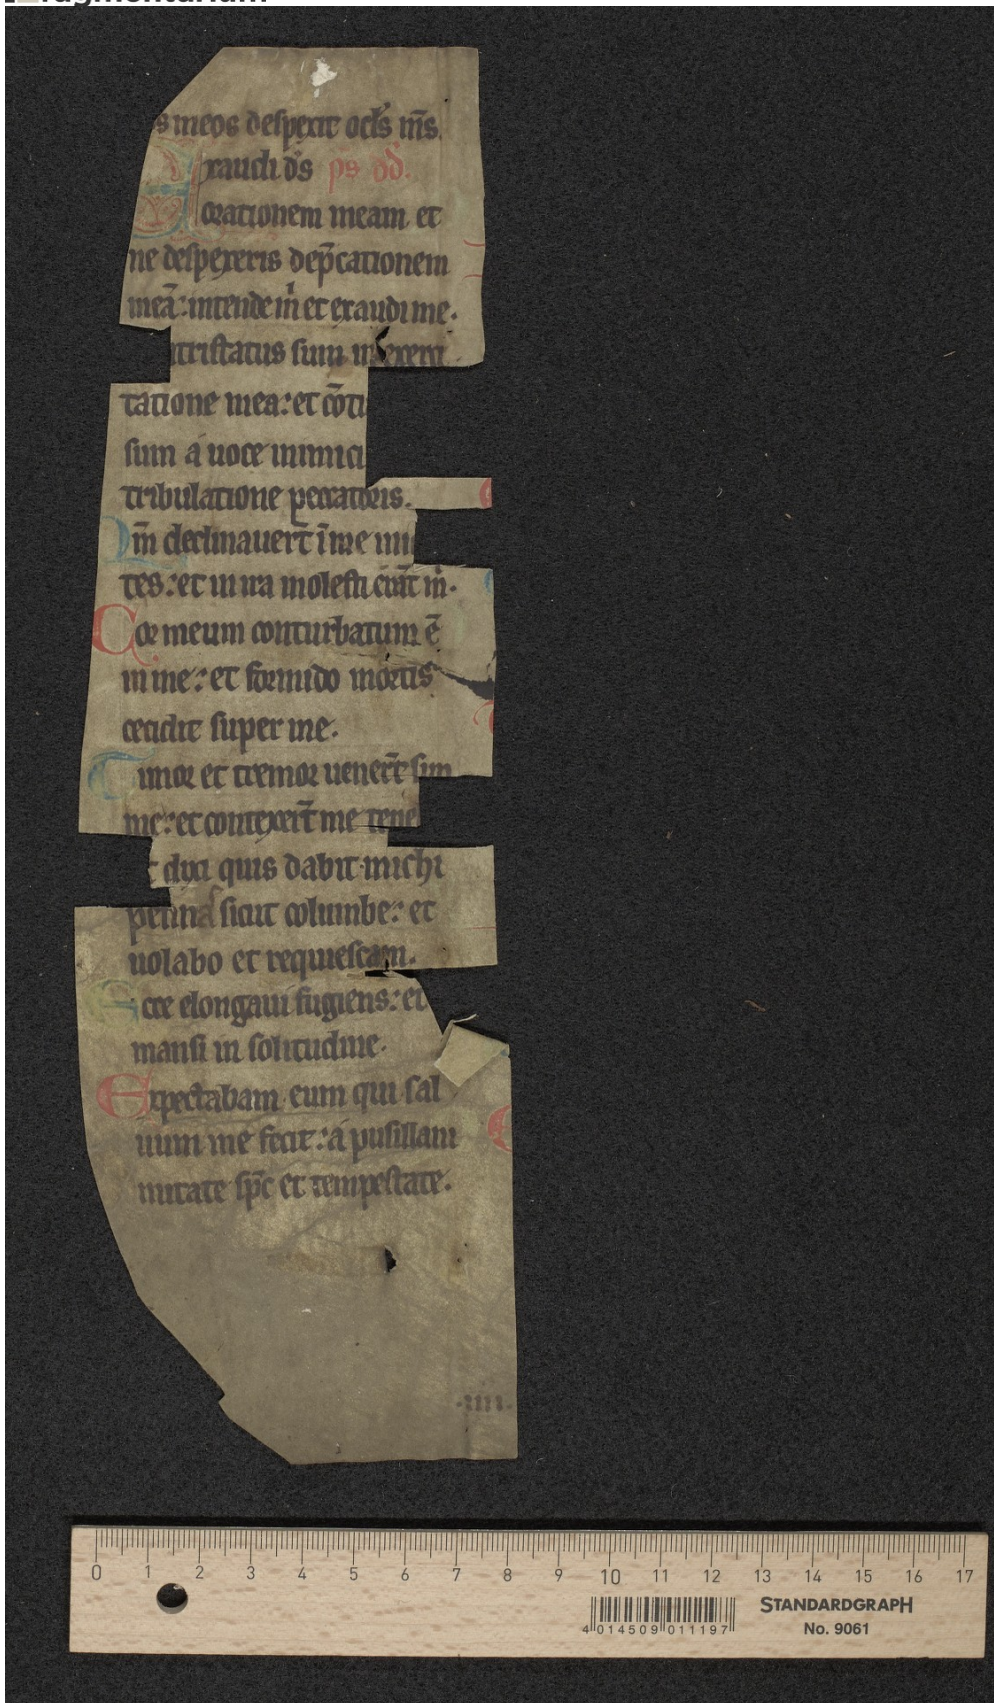 s meos despexit ocĺs m̄s.
Exaudi d̄s ps dd̄.
orationem meam et
ne despexeris dep̄cationem
meā: intende m̄ et exaudi me.
ntristatus sum in exerci
tatione mea: et cōtu
sum a uoce inimici
tribulatione peccatoris.
Qm̄ declinauer̄t ī me
tes: et in ira molesti erāt m̄.
Cor meum conturbatum ē
in me: et formido mortis
cecidit super me.
Timor et tremor uener̄t sup
me: et contexer̄t me tene
t dixi quis dabit michi
penna sicut columbe: et
uolabo et requiescam.
Ecce elongaui fugiens: et
mansi in solitudine.
Expectabam eum qui sal
uum me fecit: a pusillani
mitate sp̄c et tempestate.
.iiii.
0 1 2 3 4 5 6 7 8 9 10 11 12 13 14 15 16 17
STANDARDGRAPH
No. 9061
4 014509 011197